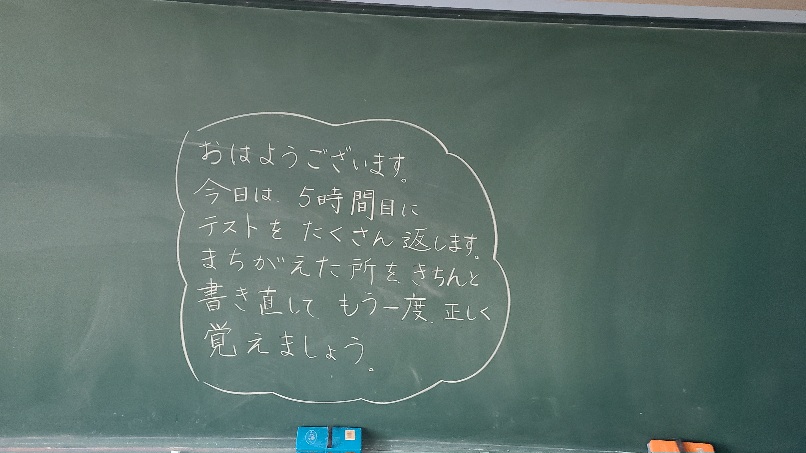 おはようございます。
今日は、5時間目に
テストを たくさん 返します。
まちがえた所を、きちんと
書き直して、もう一度、正しく
覚えましょう。